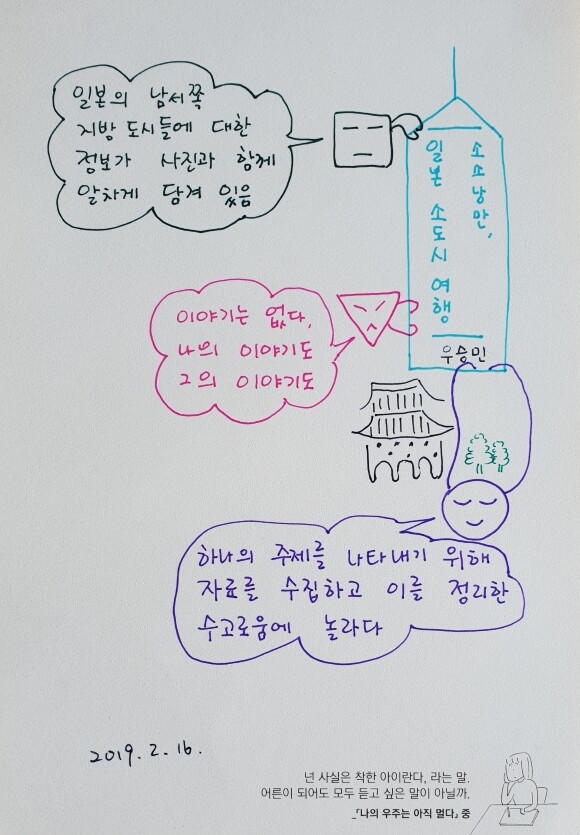 일본의 남서쪽
지방 도시들에 대한
정보가 사진과 함께
알차게 담겨 있음
소소낭만,
일본 소도시 여행
우승민
이야기는 없다,
나의 이야기도
그의 이야기도
하나의 주제를 나타내기 위해
자료를 수집하고 이를 정리한
수고로움에 놀라다
2019. 2. 16.
넌 사실은 착한 아이란다, 라는 말.
어른이 되어도 모두 듣고 싶은 말이 아닐까.
_『나의 우주는 아직 멀다』 중